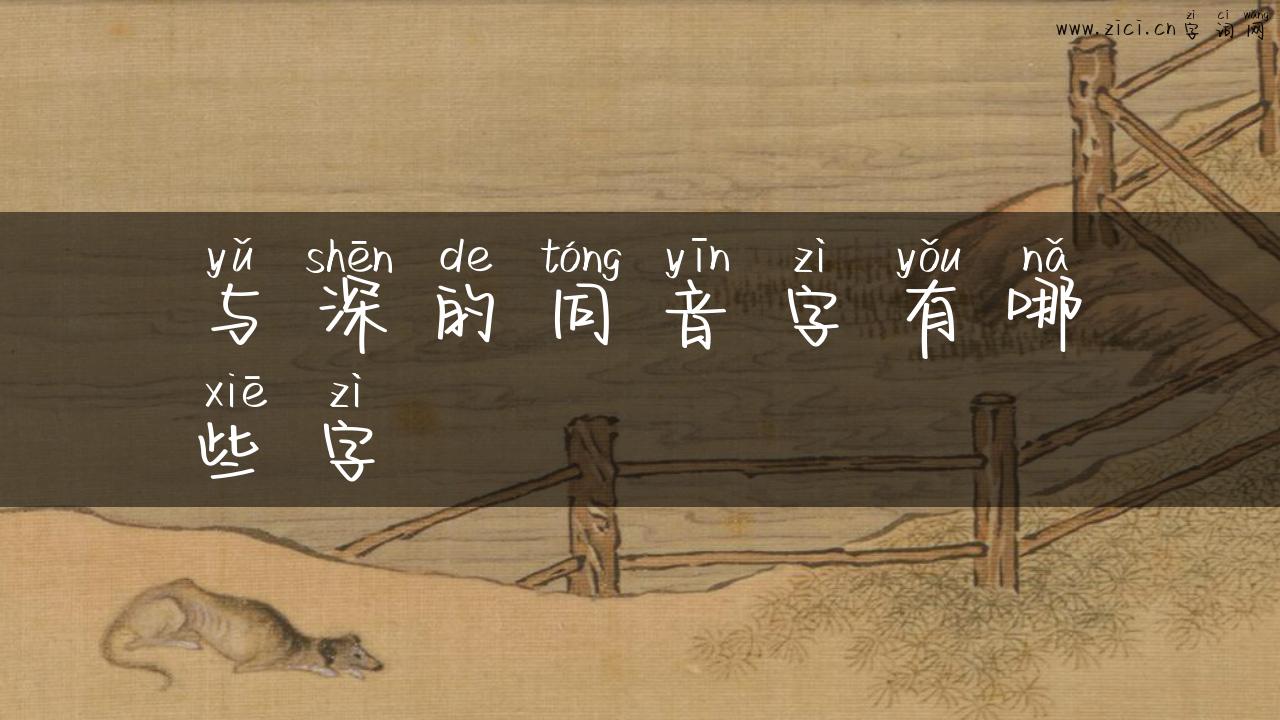 zì cí wǎng
www.zici.cn 字词网
yǔ shēn de tóng yīn zì yǒu nǎ
与深的同音字有哪
xiē zì
些字